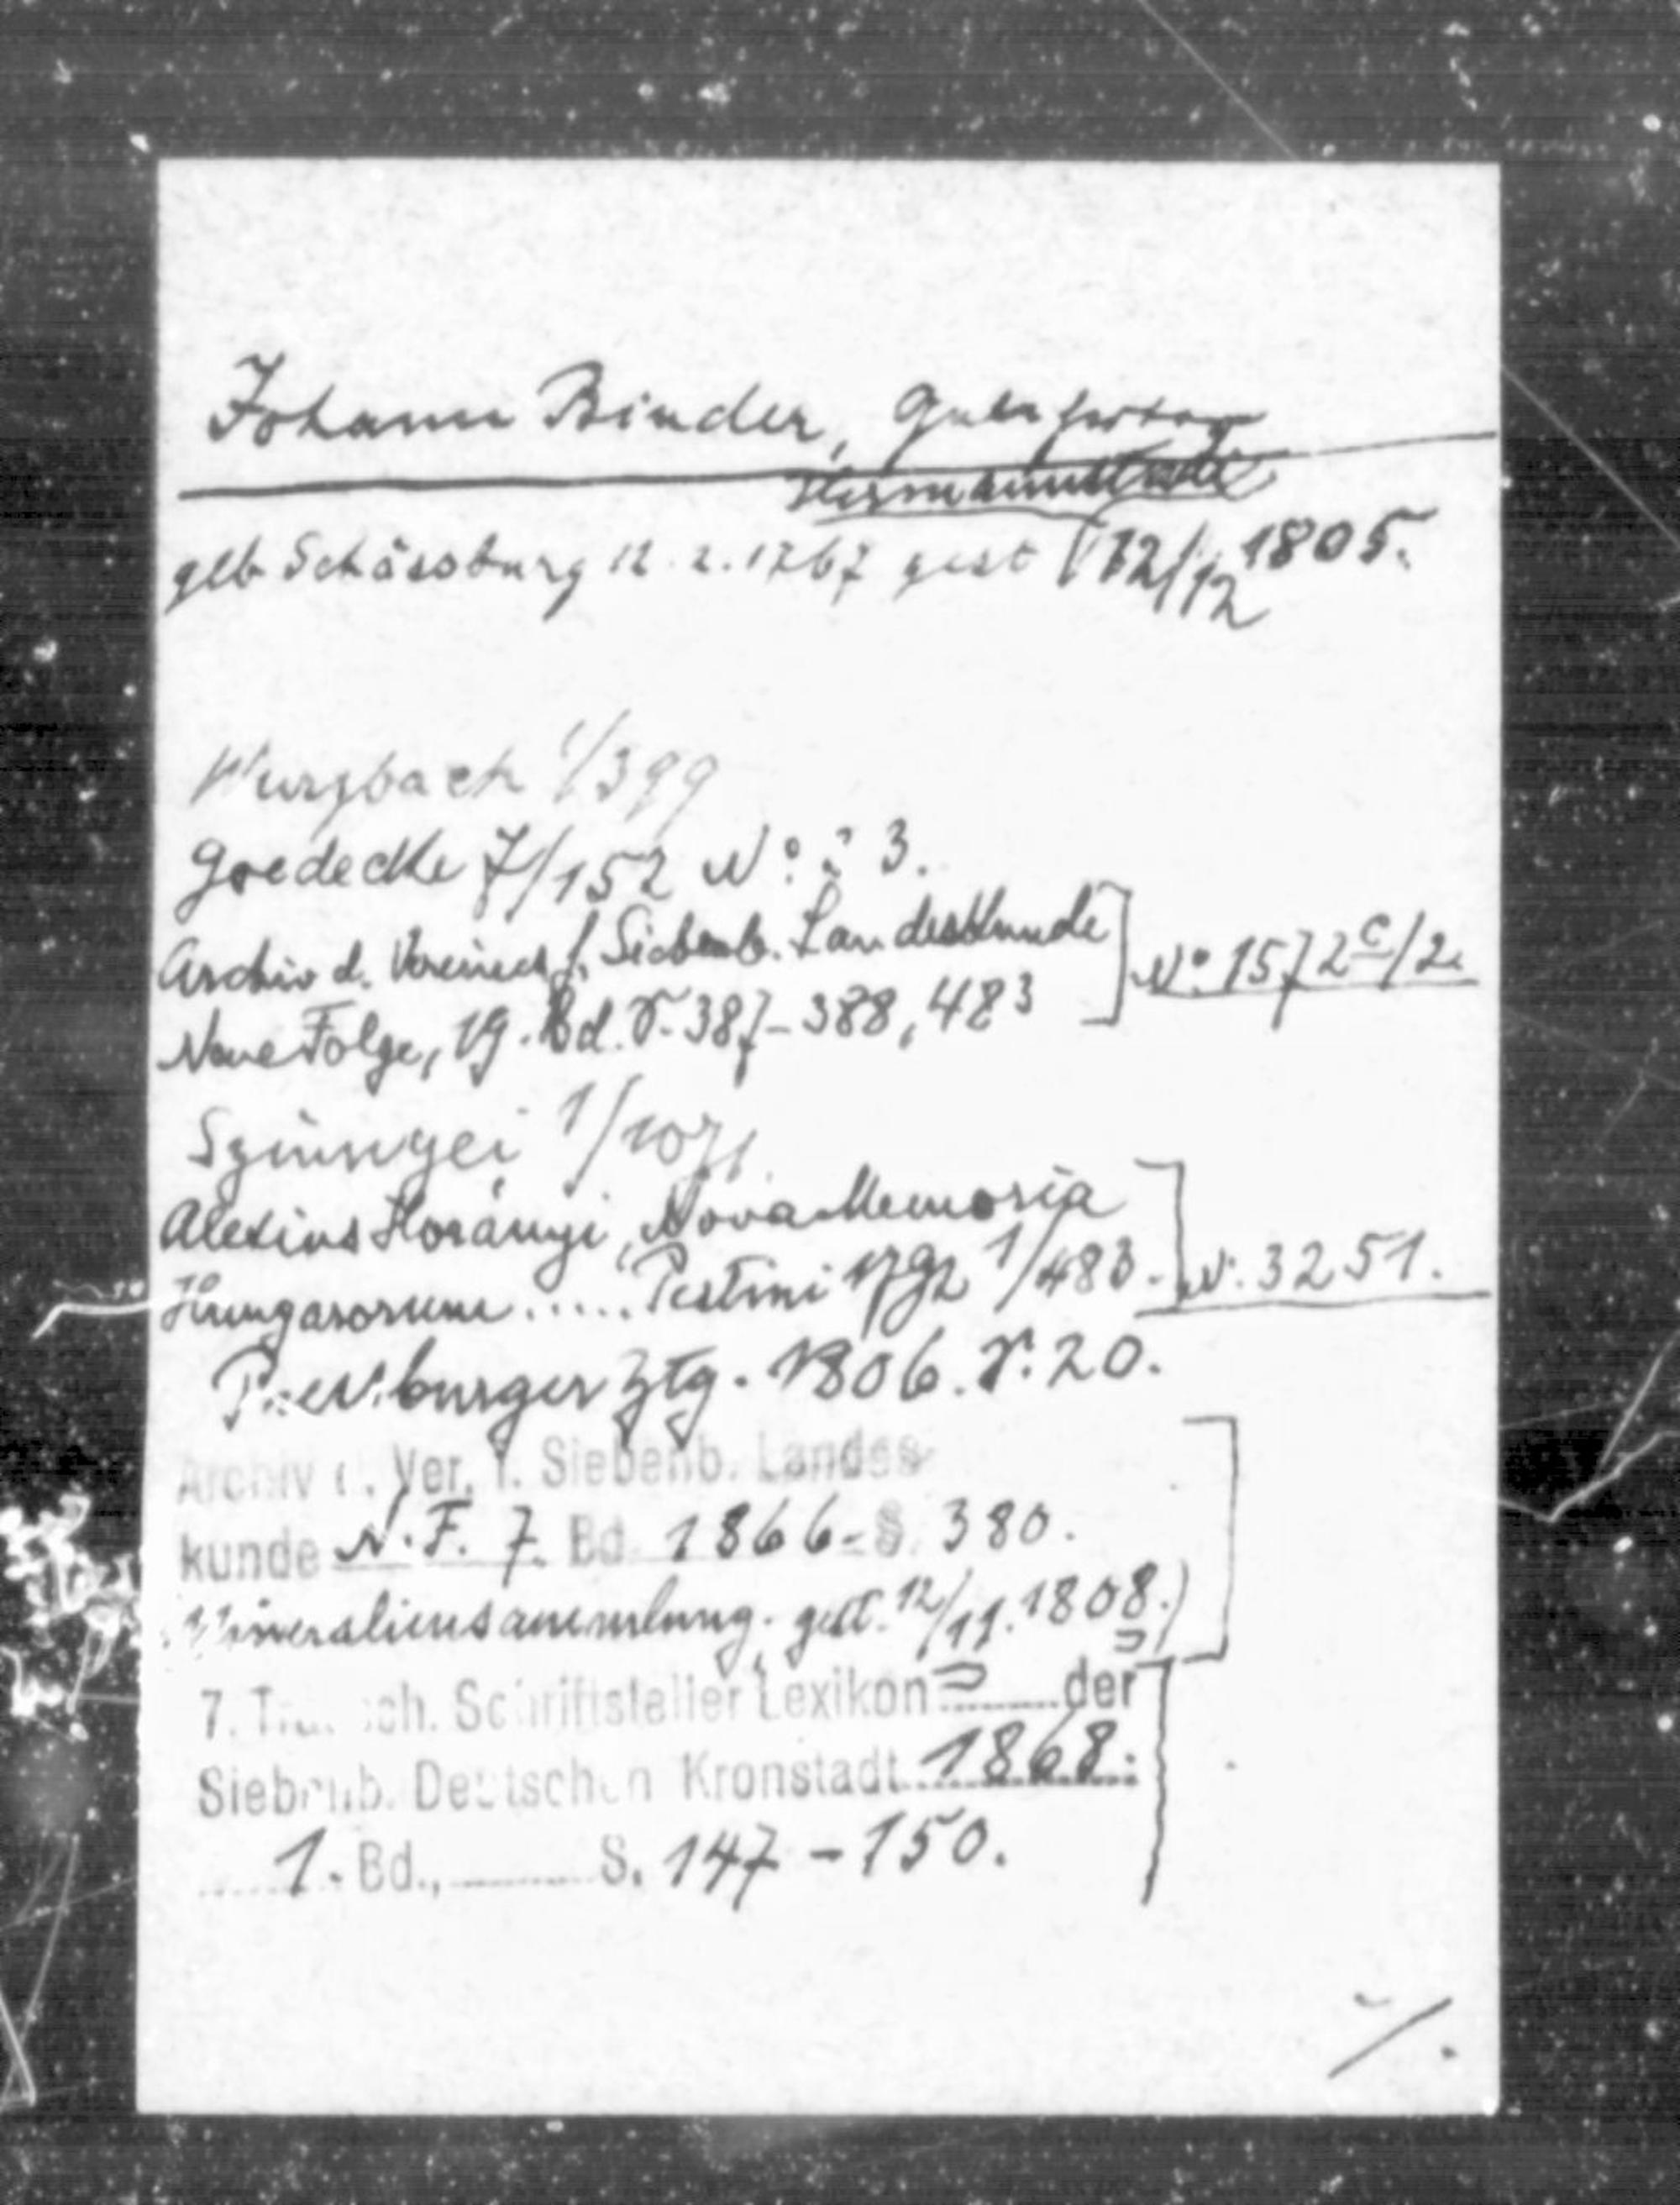 Johann Binder,
Hermannstadt
geb Schässburg 12.2.1767 gest (12/12 1805.
Wurzbach 1/399
Goedecke 7/152 No: 3.
Archiv d. Vereines f. Siebenb. Landeskunde
Neue Folge, 19. Bd. S. 387-388, 483
No. 1572 c/2.
Szinnyei 1/1071.
Alexius Horányi, Nova Memoria
Hungarorum ..... Pestini 1792 1/483.
N. 3251.
Pressburger Ztg. 1806. S. 20.
Archiv d. Ver. f. Siebenb. Landes
kunde N.F. 7. Bd. 1866. S. 380.
Mineraliensammlung. gest. 12/11. 1808.)
7. Trausch. Schriftsteller Lexikon der
Siebenb. Deutschen Kronstadt 1868.
1. Bd., S. 147-150.
./.